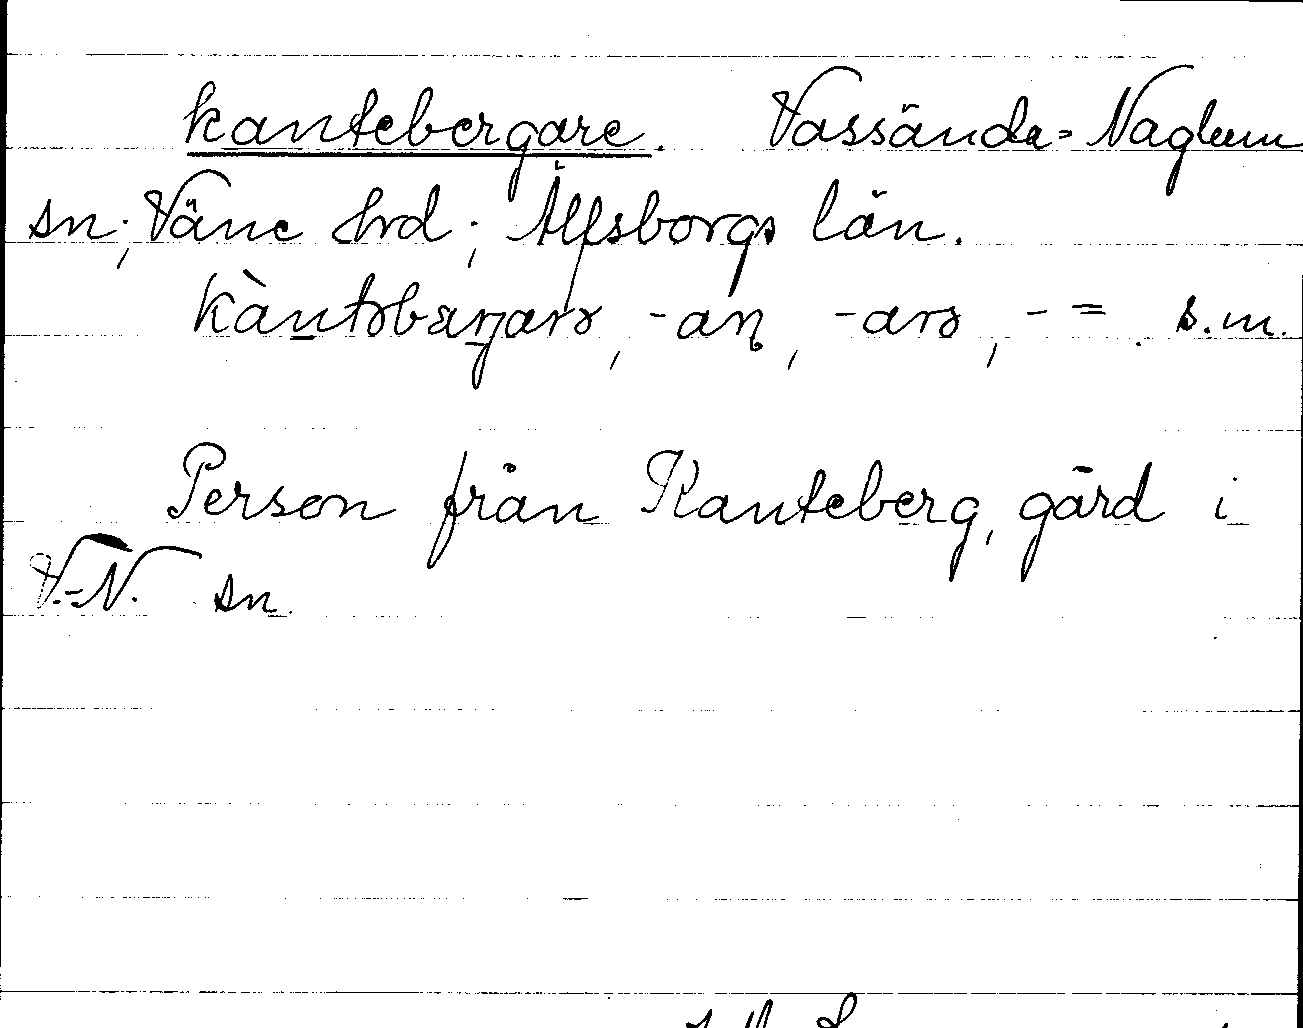 kantebergare. Vassända-Naglum
sn; Väne hrd; Älfsborgs län.
kàntəbærjarə, -an, -arə, - = . s.m.
Person från Kanteberg, gård i
V.-N. sn.